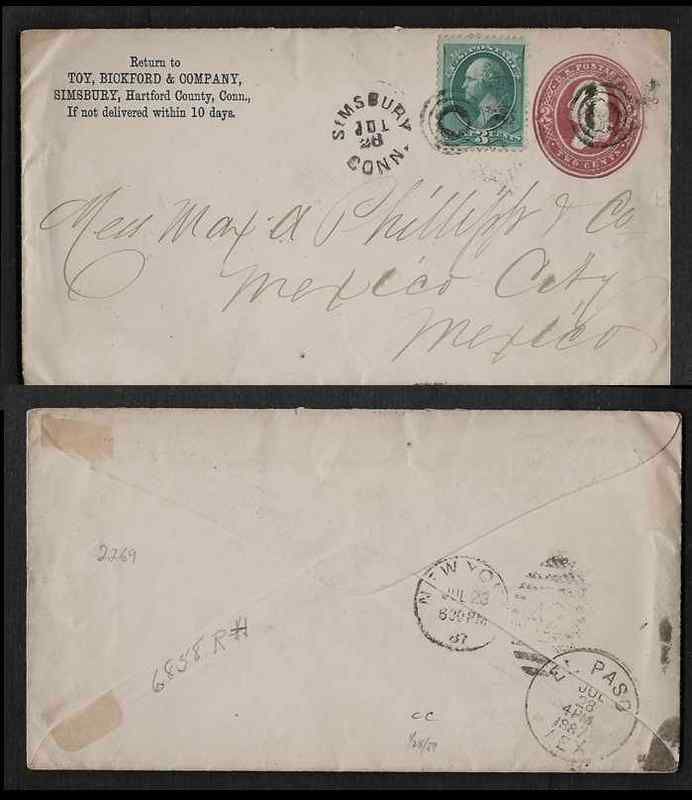 Return to
TOY, BICKFORD & COMPANY,
SIMSBURY, Hartford County, Conn.,
If not delivered within 10 days.
SIMSBURY
JUL
28
CONN.
U.S. POSTAGE
3 CENTS
U.S. POSTAGE
TWO CENTS
Mess Max A Phillipp & Co
Mexico City
Mexico
2269
6858 RH
NEW YO
JUL 23
630PM
87
EL PASO
JUL
28
4PM
1887
TEX
CC